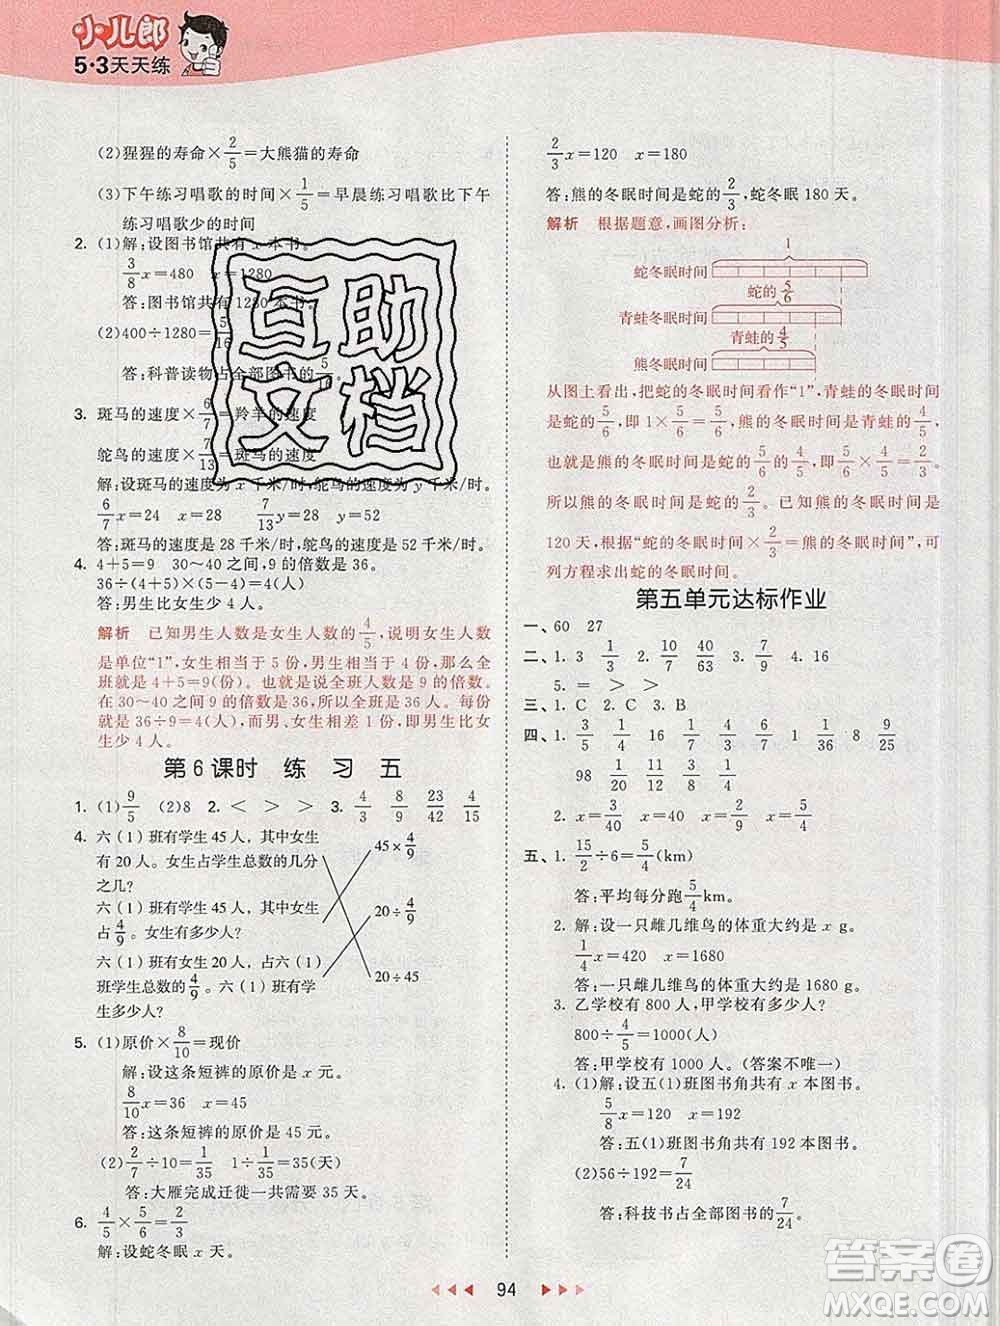 小儿郎
5·3天天练
(2)猩猩的寿命×2/5=大熊猫的寿命
(3)下午练习唱歌的时间×1/5=早晨练习唱歌比下午
练习唱歌少的时间
2. (1)解:设图书馆共有 x 本书。
3/8x=480 x=1280
答:图书馆共有 1280 本书。
(2)400÷1280=5/16
答:科普读物占全部图书的5/16。
3. 斑马的速度×6/7=羚羊的速度
鸵鸟的速度×7/13=斑马的速度
解:设斑马的速度为 x 千米/时,鸵鸟的速度为 y 千米/时。
6/7x=24 x=28 7/13y=28 y=52
答:斑马的速度是 28 千米/时,鸵鸟的速度是 52 千米/时。
4. 4+5=9 30～40 之间,9 的倍数是 36。
36÷(4+5)×(5-4)=4(人)
答:男生比女生少 4 人。
解析 已知男生人数是女生人数的4/5,说明女生人数
是单位“1”,女生相当于 5 份,男生相当于 4 份,那么全
班就是 4+5=9(份)。也就是说全班人数是 9 的倍数。
在 30～40 之间 9 的倍数是 36,所以全班有 36 人。每份
就是 36÷9=4(人),而男、女生相差 1 份,即男生比女
生少 4 人。
第 6 课时 练 习 五
1. (1)9/5 (2)8 2. < > > 3. 4/3 8/9 23/42 4/15
4. 六(1)班有学生 45 人,其中女生
有 20 人。女生占学生总数的几分
之几?
45×4/9
六(1)班有学生 45 人,其中女生
占4/9。女生有多少人?
20÷4/9
六(1)班有女生 20 人,占六(1)
班学生总数的4/9。六(1)班有学
生多少人?
20÷45
5. (1)原价×8/10=现价
解:设这条短裤的原价是 x 元。
8/10x=36 x=45
答:这条短裤的原价是 45 元。
(2)2/7÷10=1/35 1÷1/35=35(天)
答:大雁完成迁徙一共需要 35 天。
6. 4/5×5/6=2/3
解:设蛇冬眠 x 天。
2/3x=120 x=180
答:熊的冬眠时间是蛇的2/3,蛇冬眠 180 天。
解析 根据题意,画图分析:
1
蛇冬眠时间
蛇的5/6
青蛙冬眠时间
青蛙的4/5
熊冬眠时间
从图上看出,把蛇的冬眠时间看作“1”,青蛙的冬眠时间
是蛇的5/6,即 1×5/6=5/6,熊的冬眠时间是青蛙的4/5,
也就是熊的冬眠时间是蛇的5/6的4/5,即5/6×4/5=2/3。
所以熊的冬眠时间是蛇的2/3。已知熊的冬眠时间是
120 天,根据“蛇的冬眠时间×2/3=熊的冬眠时间”,可
列方程求出蛇的冬眠时间。
第五单元达标作业
一、60 27
二、1. 3 1/3 2. 7/10 40/63 3. 7/9 4. 16
5. = > >
三、1. C 2. C 3. B
四、1. 3/5 1/4 16 1/7 4/3 6/7 1/2 8 9/25
98 1/20 4/3 2/3
2. x=4/9 x=40 x=2/9 x=9/4
五、1. 15/2÷6=5/4(km)
答:平均每分跑5/4km。
2. 解:设一只雌几维鸟的体重大约是 x g。
1/4x=420 x=1680
答:一只雌几维鸟的体重大约是 1680 g。
3. 乙学校有 800 人,甲学校有多少人?
800÷4/5=1000(人)
答:甲学校有 1000 人。(答案不唯一)
4. (1)解:设五(1)班图书角共有 x 本图书。
5/8x=120 x=192
答:五(1)班图书角共有 192 本图书。
(2)56÷192=7/24
答:科技书占全部图书的7/24。
94
互助
文档
答案圈
MXQE.COM